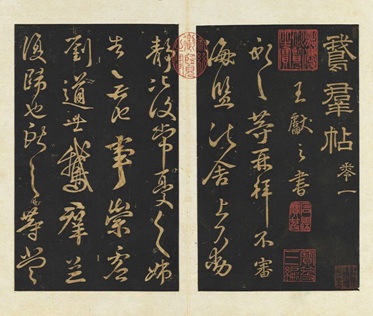 鵞羣帖
卷一
王獻之書
獻之等再拜不審
海鹽諸舍上下動
靜比復常憂之姊
告無他事崇虛
劉道士鵞羣並
復歸也獻之等當